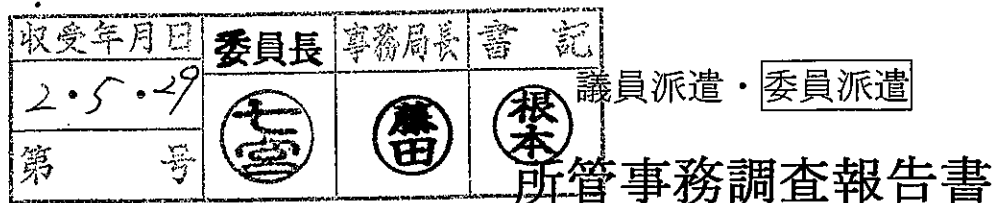 収受年月日 委員長 事務局長 書記
2・5・29 七宮 藤田 根本
第 号
議員派遣・委員派遣
所管事務調査報告書